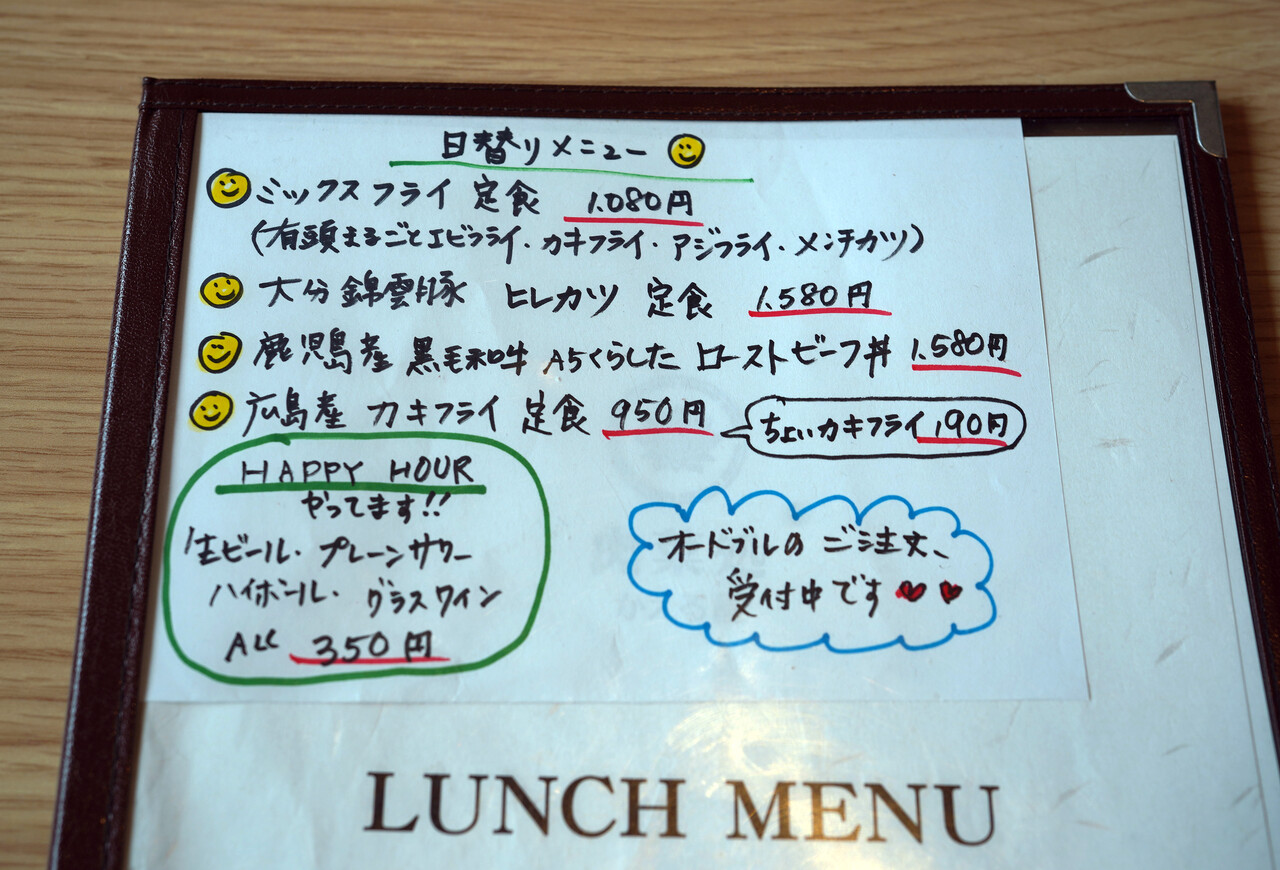 日替りメニュー
ミックスフライ 定食 1.080円
(有頭まるごとエビフライ・カキフライ・アジフライ・メンチカツ)
大分錦雲豚 ヒレカツ 定食 1.580円
鹿児島産 黒毛和牛 A5くらした ローストビーフ丼 1.580円
広島産 カキフライ 定食 950円
ちょいカキフライ 190円
HAPPY HOUR
やってます!!
生ビール・プレーンサワー
ハイボール・グラスワイン
ALL 350円
オードブルの ご注文、
受付中です
LUNCH MENU